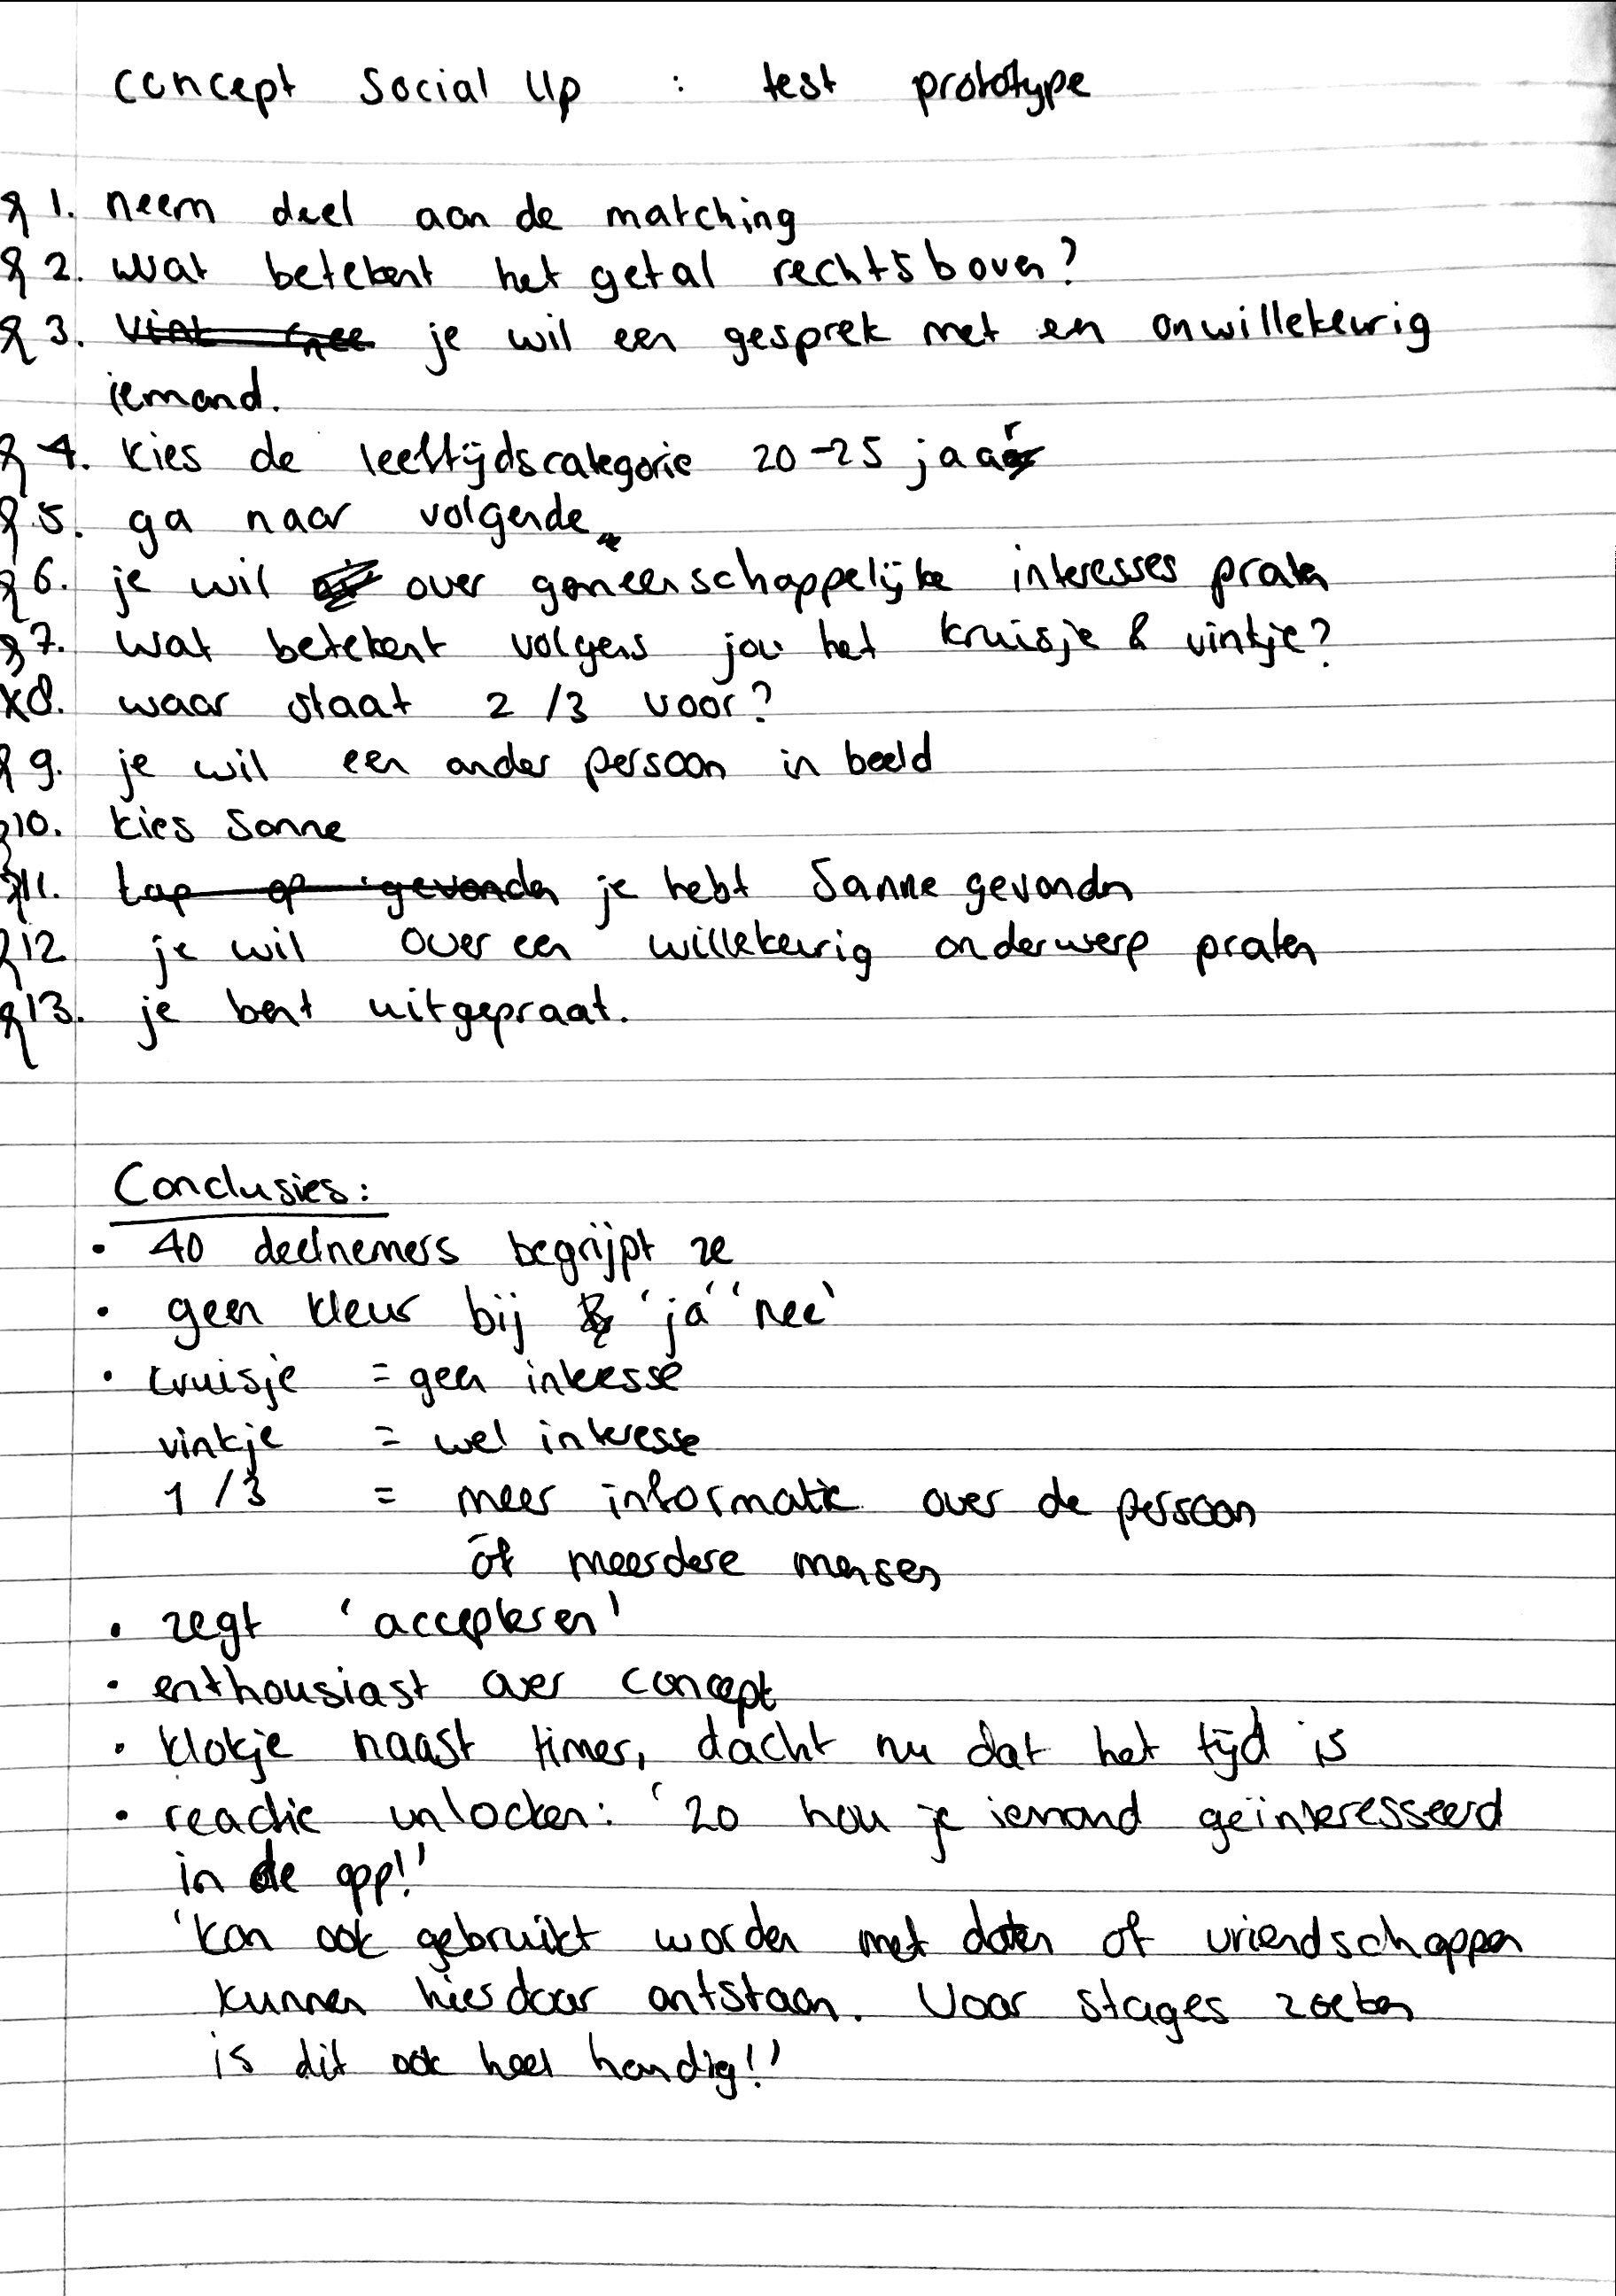 concept Social Up : test prototype
1. neem deel aan de matching
2. wat betekent het getal rechtsboven?
3. je wil een gesprek met en onwillekeurig
iemand.
4. kies de leeftijdscategorie 20-25 jaar
5. ga naar volgende
6. je wil over gemeenschappelijke interesses praten
7. wat betekent volgens jou het kruisje & vinkje?
x8. waar staat 2 /3 voor?
9. je wil een ander persoon in beeld
10. kies Sanne
11. tap op 'gevonden je hebt Sanne gevonden
12 je wil over een willekeurig onderwerp praten
13. je bent uitgepraat.
Conclusies:
• 40 deelnemers begrijpt ze
• geen kleur bij 'ja' 'nee'
• kruisje = geen interesse
vinkje = wel interesse
1 /3 = meer informatie over de persoon
óf meerdere mensen
• zegt 'accepteren'
• enthousiast over concept
• klokje naast timer, dacht nu dat het tijd is
• reactie unlocken: 'zo hou je iemand geïnteresseerd
in de app!'
'kan ook gebruikt worden met daten of vriendschappen
kunnen hierdoor ontstaan. Voor stages zoeken
is dit ook heel handig!'